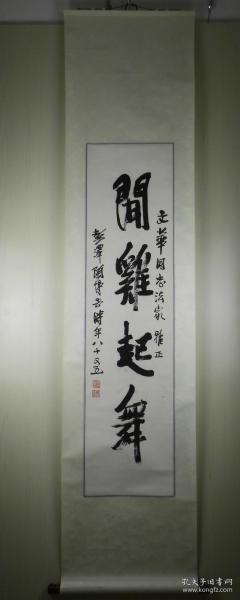 文華同志法家雅正
聞雞起舞
彭澤 時年八十又五
孔夫子旧书网